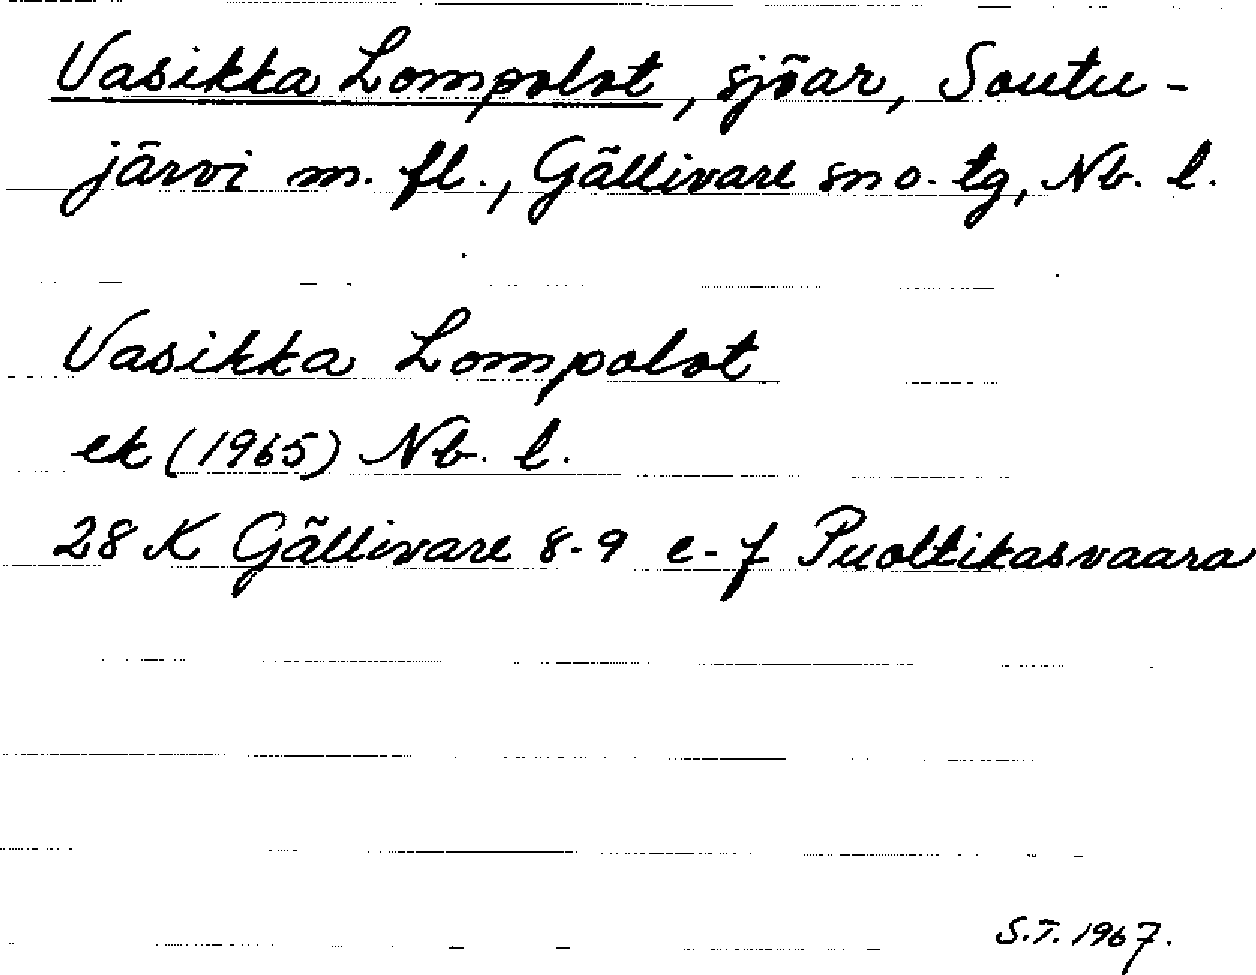 Vasikka Lompolot, sjöar, Soutu-
järvi m. fl., Gällivare sn o. tg, Nb. l.
Vasikka Lompolot
ek (1965) Nb. l.
28 K Gällivare 8-9 e-f Puoltikasvaara
S.T. 1967.